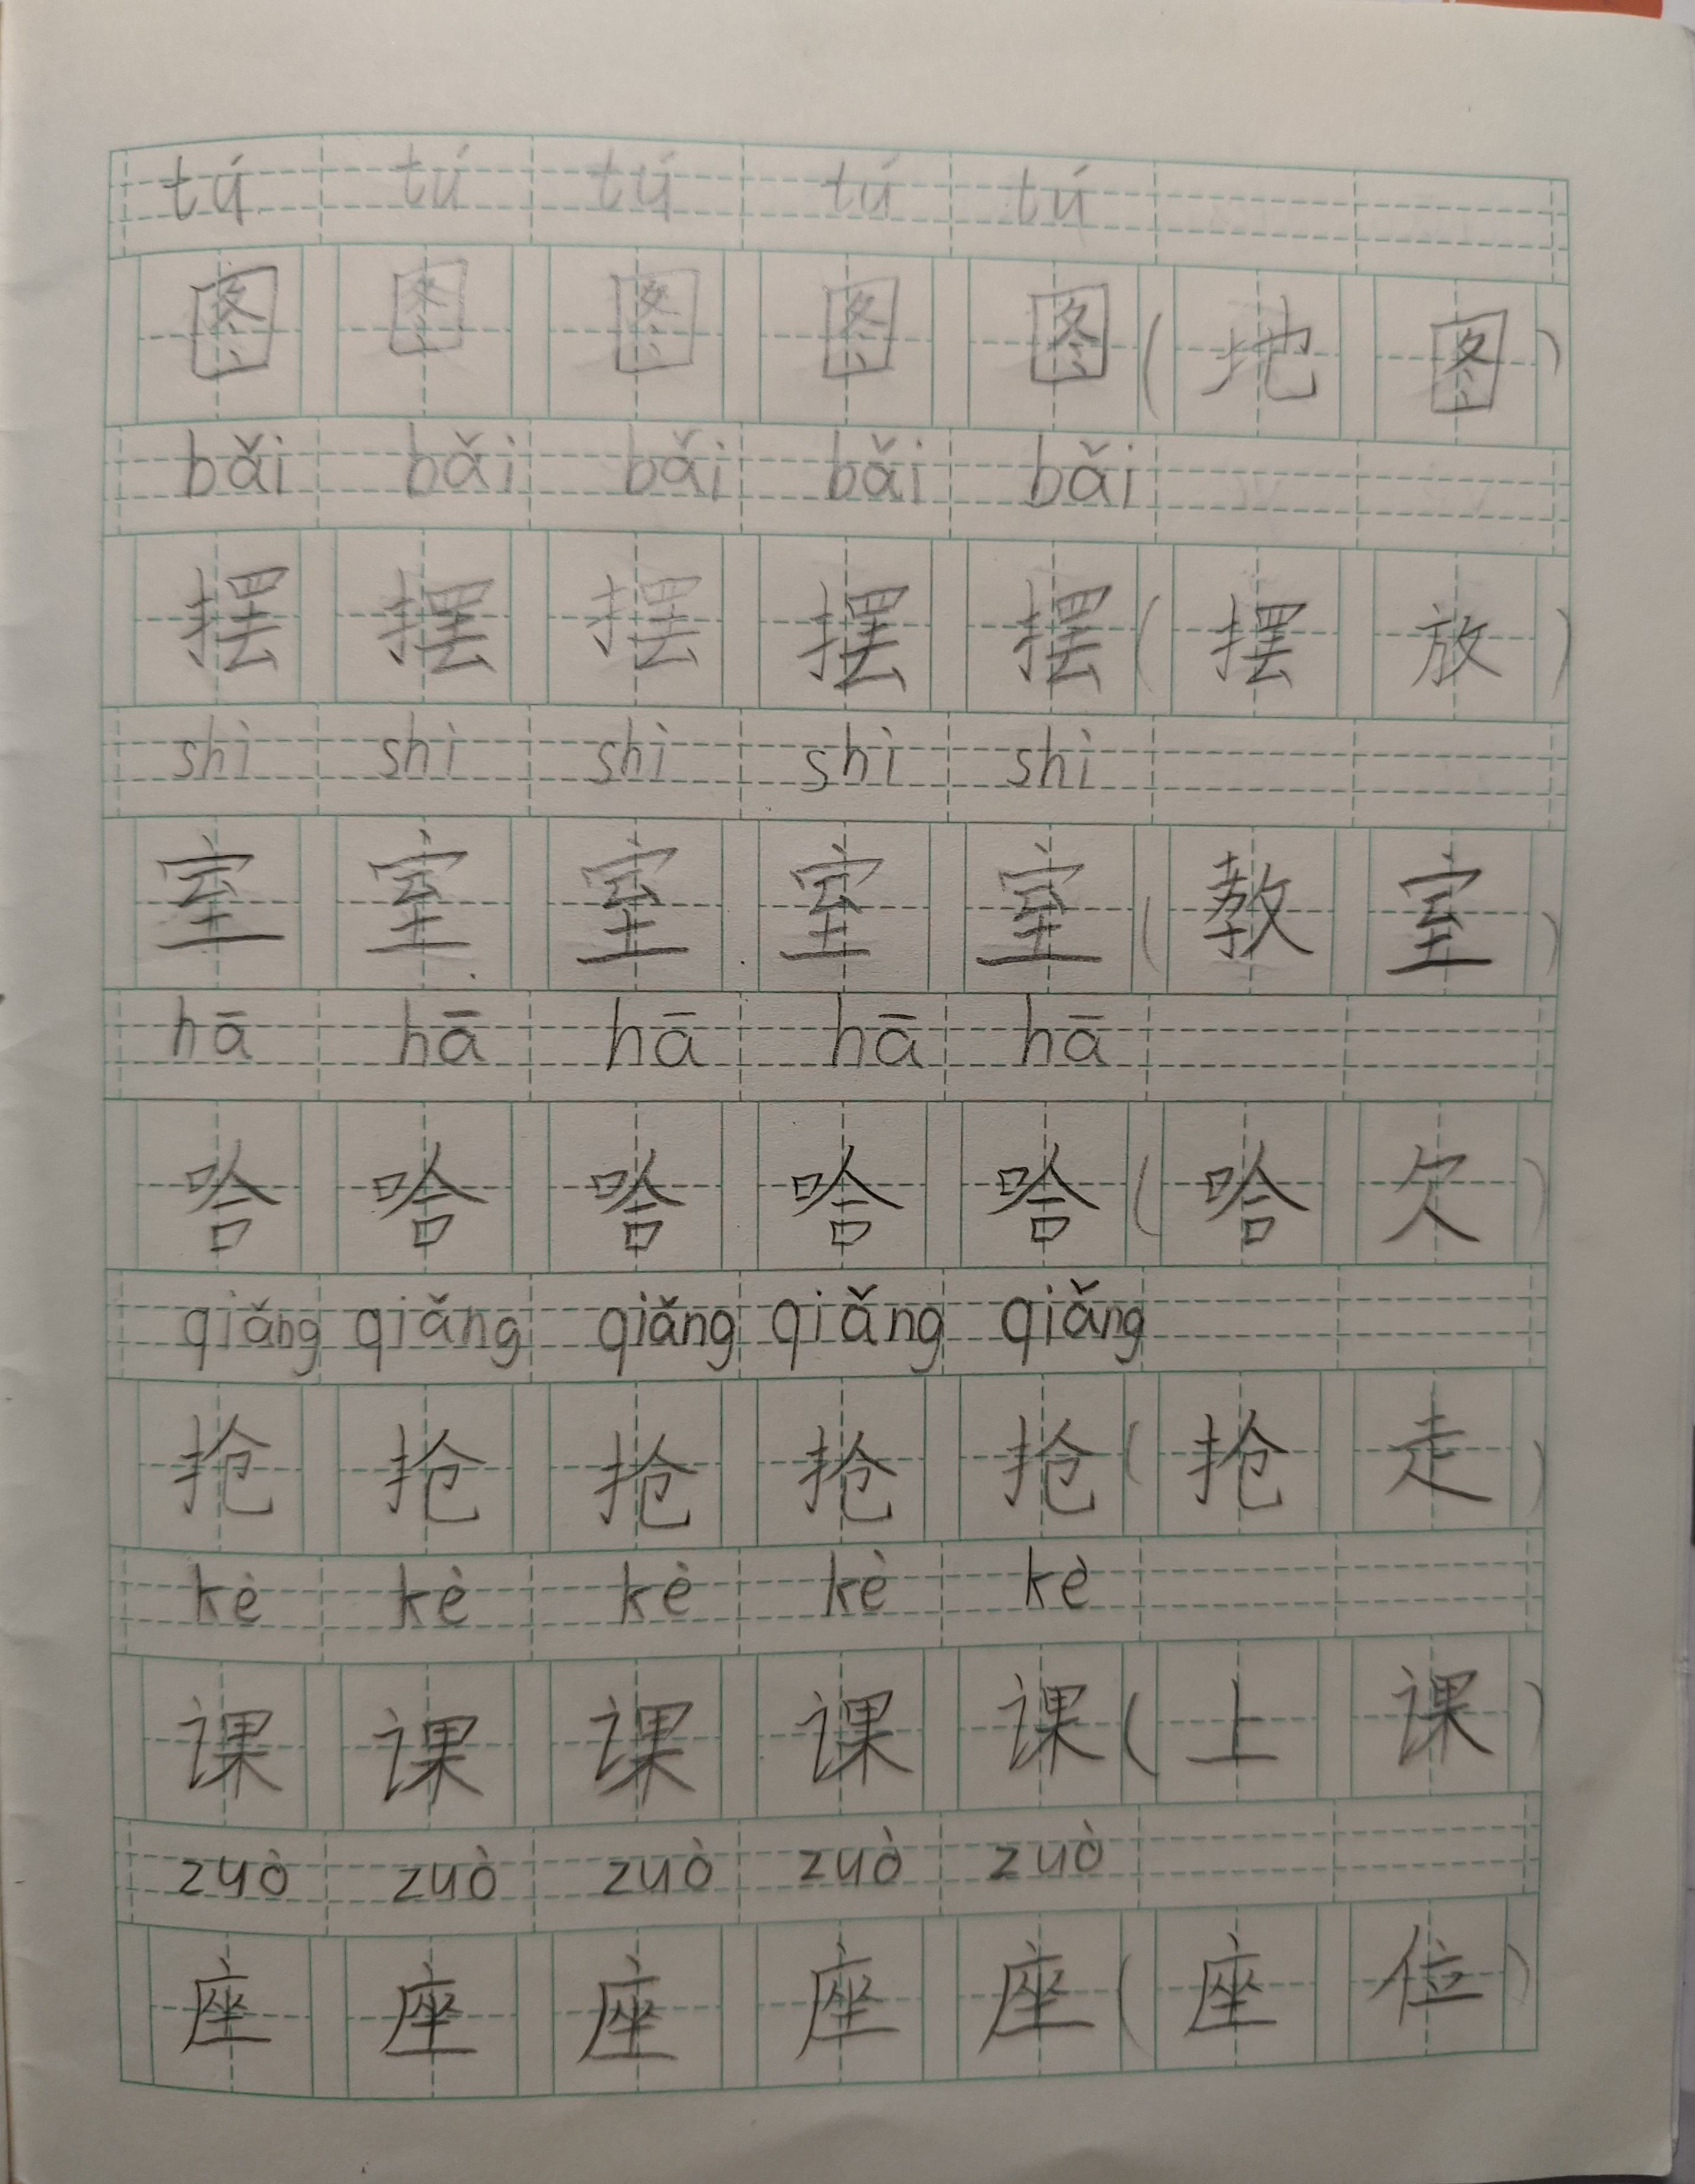 tú tú tú tú tú
图 图 图 图 图 ( 地 图 )
bǎi bǎi bǎi bǎi bǎi
摆 摆 摆 摆 摆 ( 摆 放 )
shì shì shì shì shì
室 室 室 室 室 ( 教 室 )
hā hā hā hā hā
哈 哈 哈 哈 哈 ( 哈 欠 )
qiǎng qiǎng qiǎng qiǎng qiǎng
抢 抢 抢 抢 抢 ( 抢 走 )
kè kè kè kè kè
课 课 课 课 课 ( 上 课 )
zuò zuò zuò zuò zuò
座 座 座 座 座 ( 座 位 )